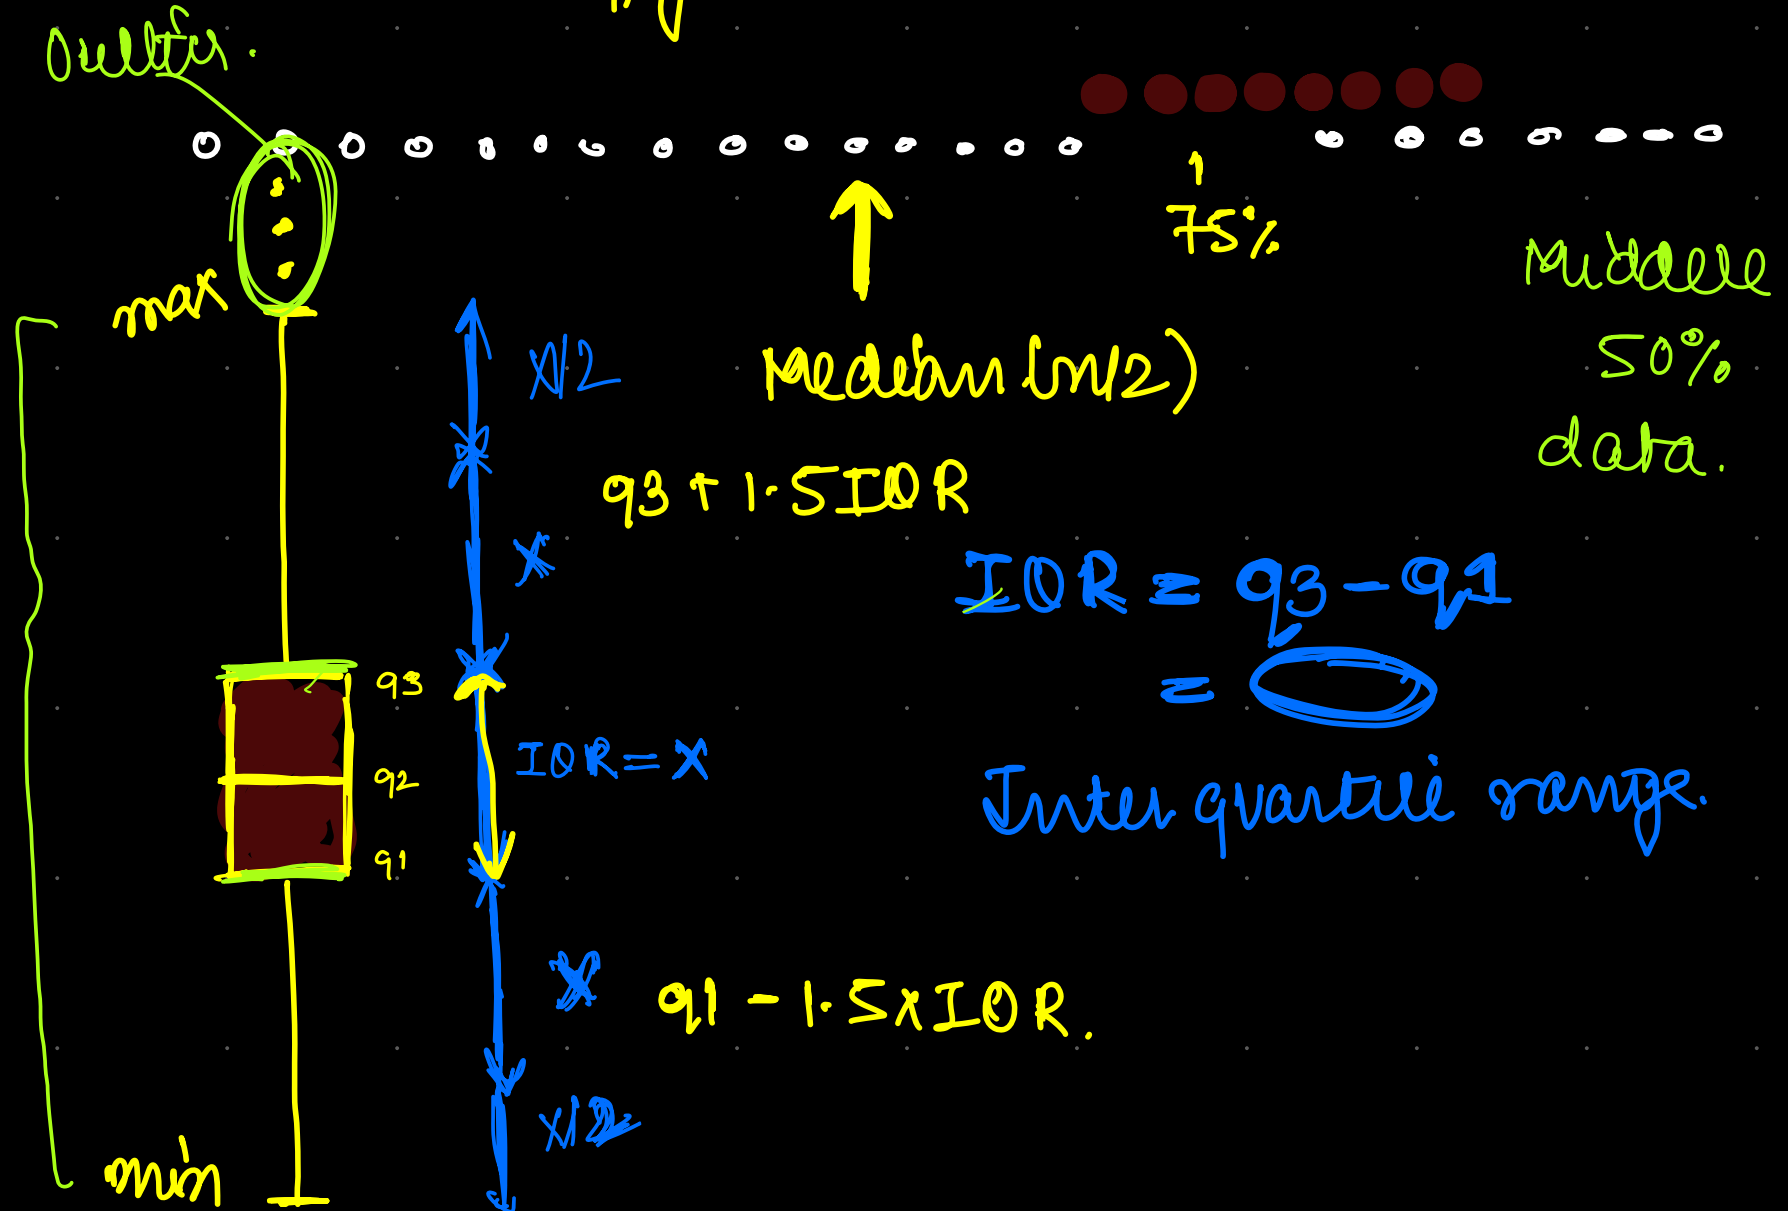 Outlier.
75%
Middle
50%
data.
max
X/2
Median (n/2)
q3 + 1.5 IQR
X
IQR = q3 - q1
=
q3
IQR = X
q2
Inter quartile range.
q1
X
q1 - 1.5 x IQR.
X/2
min